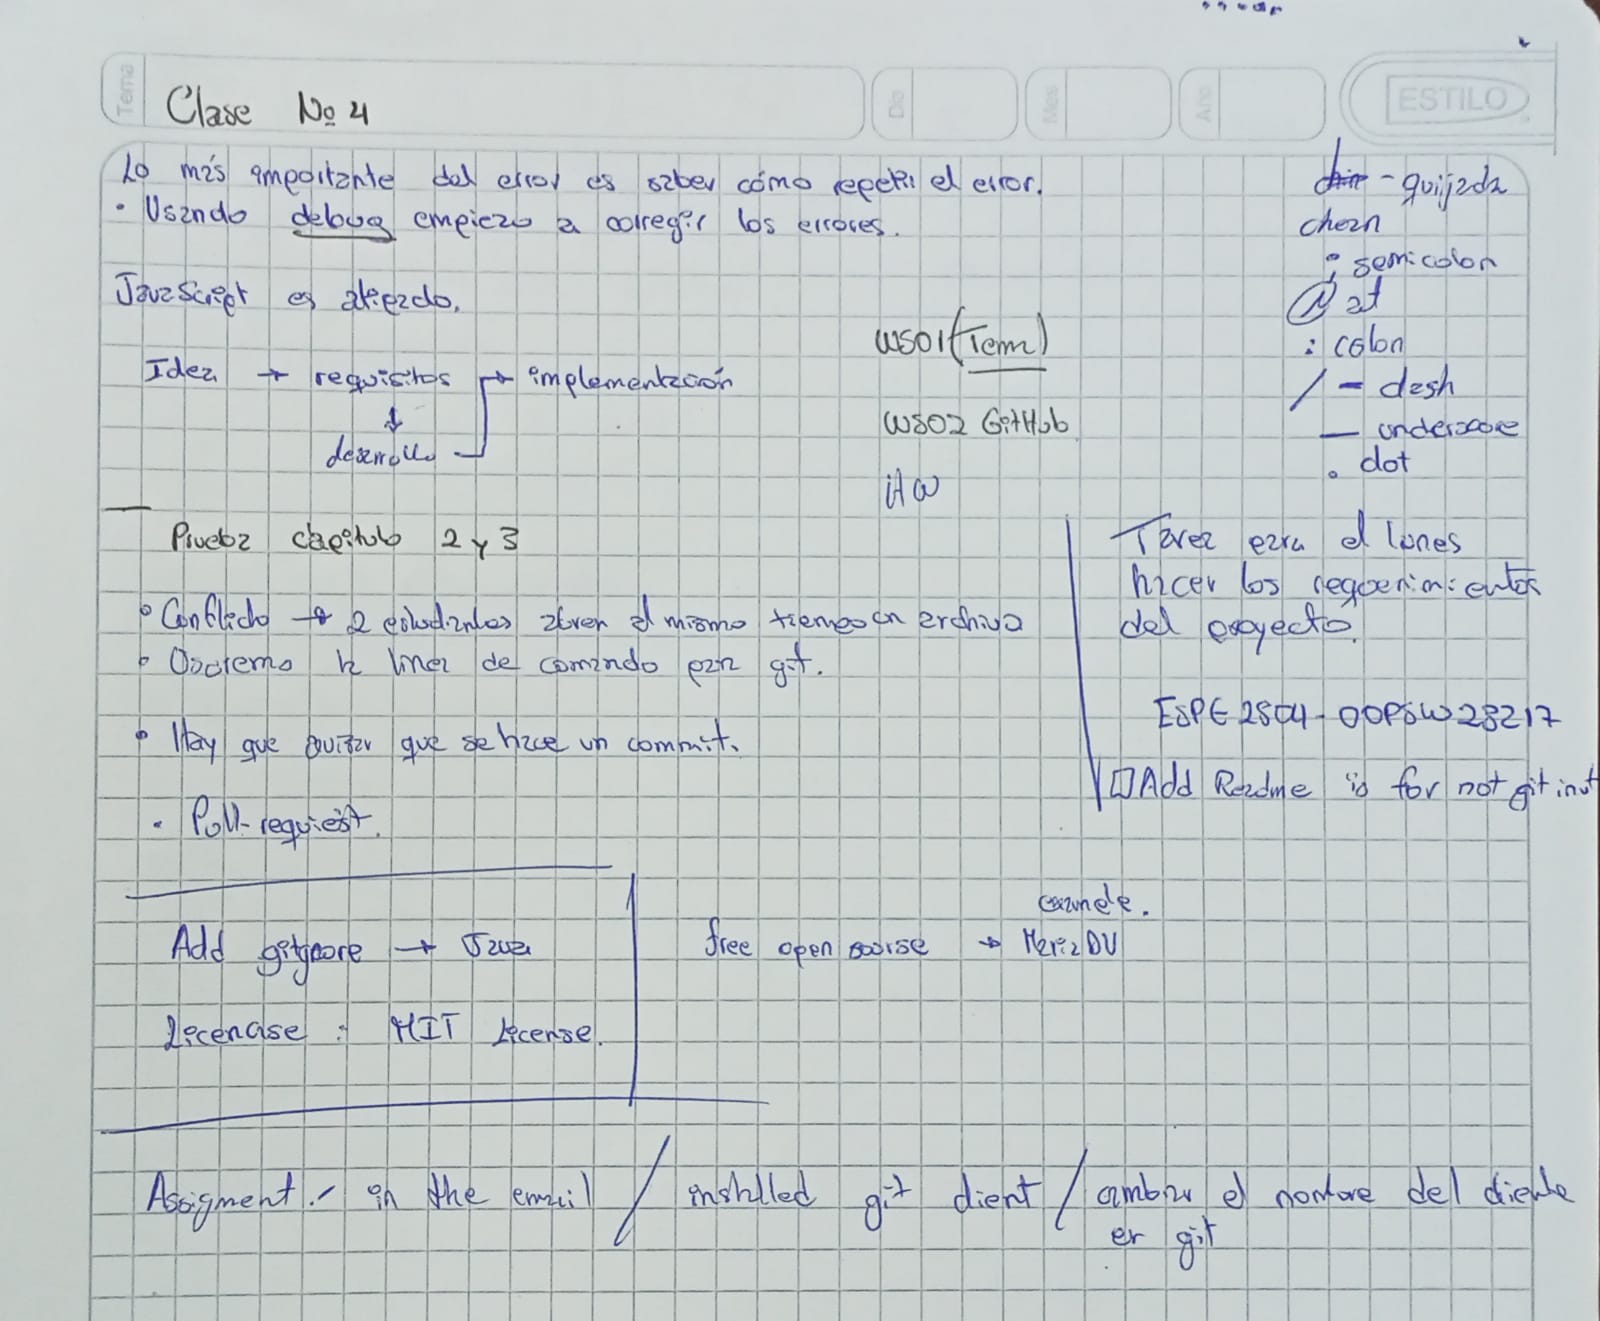 Tema
Clase No 4
Dia
Mes
Año
ESTILO
Lo más importante del error es saber cómo repetir el error.
• Usando debug empiezo a corregir los errores.
JavaScript es
Idea → requisitos → implementación
↓
desarrollo
WS01 (Team)
WS02 GitHub
HW
chin - quijada
; semicolon
@ at
: colon
/ - dash
_ underscore
. dot
Prueba capitulo 2 y 3
• Conflicto → 2 estudiantes abren al mismo tiempo un archivo
• Usaremos la linea de comando para git.
• Hay que que se hace un commit.
• Pull-request.
Tarea para el lunes
hacer los requerimientos
del proyecto.
ESPE2504-OOPSW28217
Add Readme is for not git init
Add gitgnore → Java
Licencise : MIT License.
free open sourse → MariaDV
example.
Assigment / in the email / installed git client / cambiar el nombre del cliente
en git